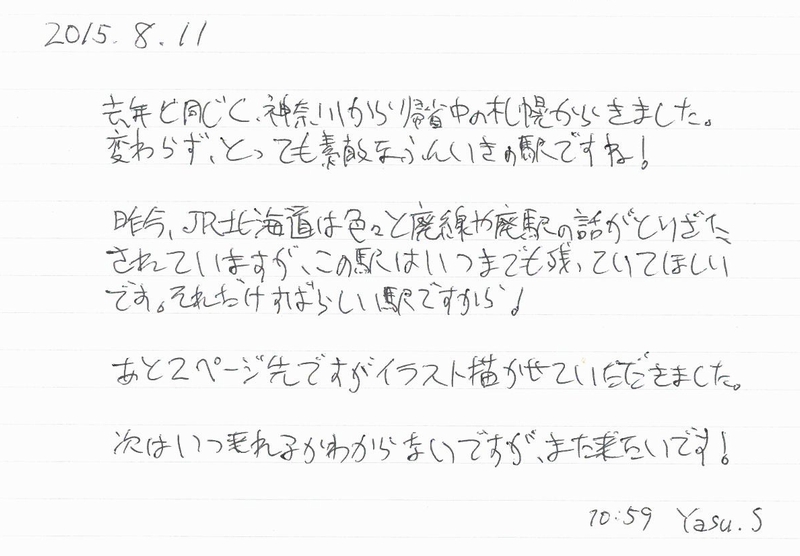 2015.8.11
去年と同じく、神奈川から帰省中の札幌からきました。
変わらず、とっても素敵なふんいきの駅ですね！
昨今、JR北海道は色々と廃線や廃駅の話がとりざた
されていますが、この駅はいつまでも残っていてほしい
です。それだけすばらしい駅ですから！
あと2ページ先ですがイラスト描かせていただきました。
次はいつ来れるかわからないですが、また来たいです！
10:59 Yasu.S